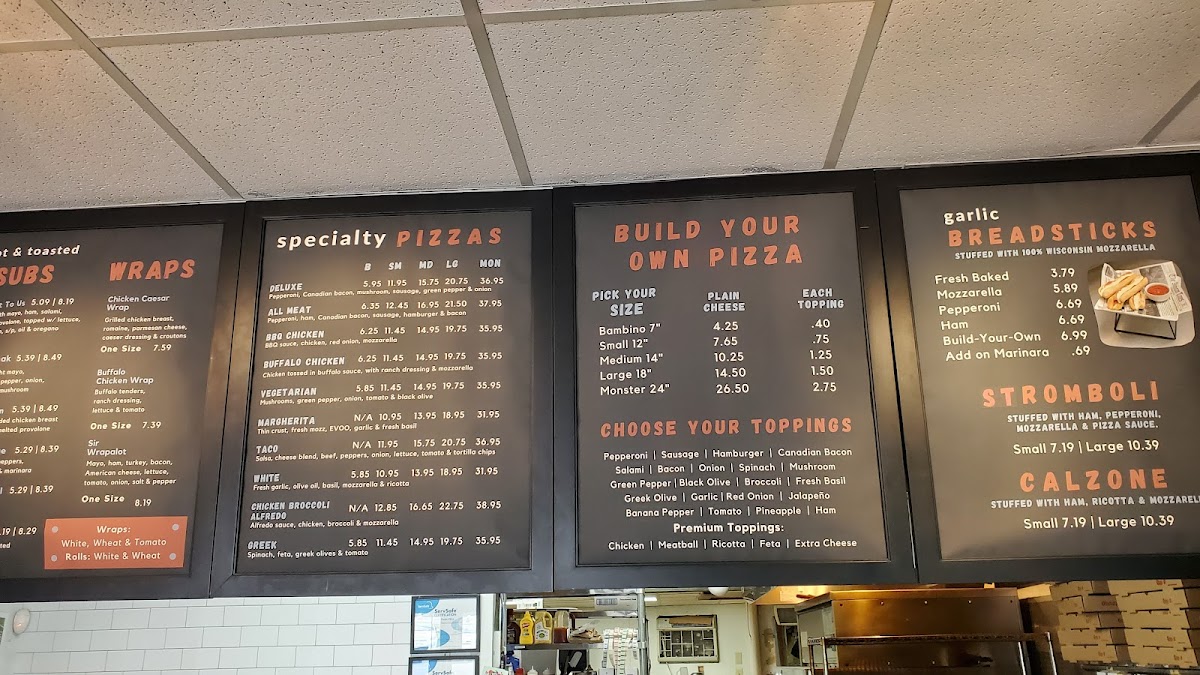 ot & toasted
SUBS
t To Us 5.09 | 8.19
th mayo, ham, salami,
ovolone, topped w/ lettuce,
n, s/p, oil & oregano
ak 5.39 | 8.49
ht mayo,
pepper, onion,
mushroom
n 5.39 | 8.49
ded chicken breast
melted provolone
se 5.29 | 8.39
eppers,
& marinara
l 5.29 | 8.39
.19 | 8.29
sted
WRAPS
Chicken Caesar
Wrap
Grilled chicken breast,
romaine, parmesan cheese,
caeser dressing & croutons
One Size 7.59
Buffalo
Chicken Wrap
Buffalo tenders,
ranch dressing,
lettuce & tomato
One Size 7.39
Sir
Wrapalot
Mayo, ham, turkey, bacon,
American cheese, lettuce,
tomato, onion, salt & pepper
One Size 8.19
Wraps:
White, Wheat & Tomato
Rolls: White & Wheat
specialty PIZZAS
B SM MD LG MON
DELUXE 5.95 11.95 15.75 20.75 36.95
Pepperoni, Canadian bacon, mushroom, sausage, green pepper & onion
ALL MEAT 6.35 12.45 16.95 21.50 37.95
Pepperoni, ham, Canadian bacon, sausage, hamburger & bacon
BBQ CHICKEN 6.25 11.45 14.95 19.75 35.95
BBQ sauce, chicken, red onion, mozzarella
BUFFALO CHICKEN 6.25 11.45 14.95 19.75 35.95
Chicken tossed in buffalo sauce, with ranch dressing & mozzarella
VEGETARIAN 5.85 11.45 14.95 19.75 35.95
Mushrooms, green pepper, onion, tomato & black olive
MARGHERITA N/A 10.95 13.95 18.95 31.95
Thin crust, fresh mozz, EVOO, garlic & fresh basil
TACO N/A 11.95 15.75 20.75 36.95
Salsa, cheese blend, beef, peppers, onion, lettuce, tomato & tortilla chips
WHITE 5.85 10.95 13.95 18.95 31.95
Fresh garlic, olive oil, basil, mozzarella & ricotta
CHICKEN BROCCOLI
ALFREDO N/A 12.85 16.65 22.75 38.95
Alfredo sauce, chicken, broccoli & mozzarella
GREEK 5.85 11.45 14.95 19.75 35.95
Spinach, feta, greek olives & tomato
BUILD YOUR
OWN PIZZA
PICK YOUR SIZE PLAIN CHEESE EACH TOPPING
Bambino 7" 4.25 .40
Small 12" 7.65 .75
Medium 14" 10.25 1.25
Large 18" 14.50 1.50
Monster 24" 26.50 2.75
CHOOSE YOUR TOPPINGS
Pepperoni | Sausage | Hamburger | Canadian Bacon
Salami | Bacon | Onion | Spinach | Mushroom
Green Pepper | Black Olive | Broccoli | Fresh Basil
Greek Olive | Garlic | Red Onion | Jalapeño
Banana Pepper | Tomato | Pineapple | Ham
Premium Toppings:
Chicken | Meatball | Ricotta | Feta | Extra Cheese
garlic
BREADSTICKS
STUFFED WITH 100% WISCONSIN MOZZARELLA
Fresh Baked 3.79
Mozzarella 5.89
Pepperoni 6.69
Ham 6.69
Build-Your-Own 6.99
Add on Marinara .69
STROMBOLI
STUFFED WITH HAM, PEPPERONI,
MOZZARELLA & PIZZA SAUCE.
Small 7.19 | Large 10.39
CALZONE
STUFFED WITH HAM, RICOTTA & MOZZAREL
Small 7.19 | Large 10.39
ServSafe